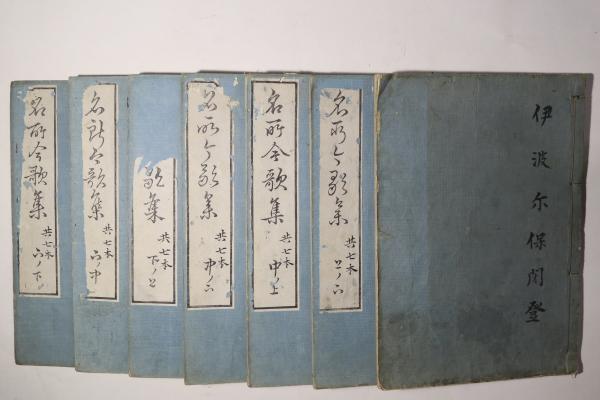 伊波尓保間登
名所今歌集
共七本
上ノ下
名所今歌集
共七本
中ノ上
名所今歌集
共七本
中ノ下
歌集
共七本
下ノ上
名所今歌集
共七本
下ノ中
名所今歌集
共七本
下ノ下